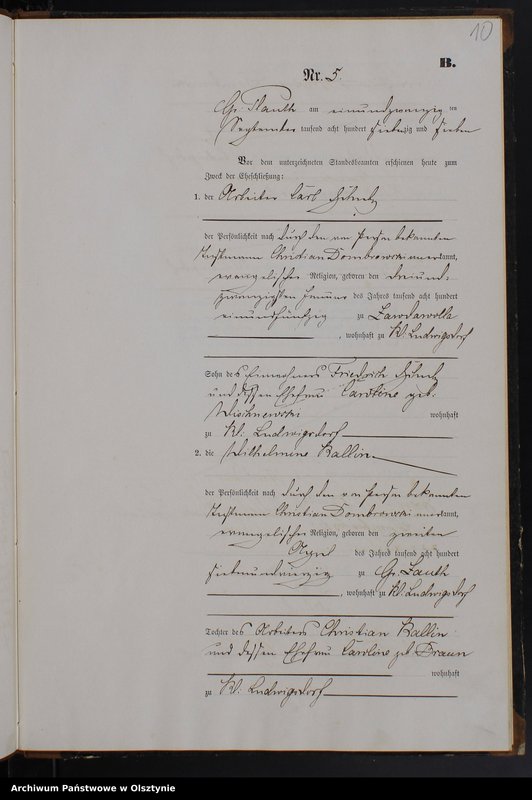 10
B.
Nr. 5.
Gr. Plauth am einundzwanzig ten
September tausend acht hundert siebenzig und sieben
Vor dem unterzeichneten Standesbeamten erschienen heute zum
Zweck der Eheschließung:
1. der Arbeiter Carl
der Persönlichkeit nach durch den von Person bekannten
Christian Dombrowski anerkannt,
evangelischer Religion, geboren den dreiund-
zwanzigsten Januar des Jahres tausend acht hundert
einundfünfzig zu
, wohnhaft zu Kl. Ludwigsdorf
Sohn des Einwohners Friedrich
und dessen Ehefrau Caroline geb.
Wischnewski wohnhaft
zu Kl. Ludwigsdorf
2. die Wilhelmine Kallin
der Persönlichkeit nach durch den von Person bekannten
Christian Dombrowski anerkannt,
evangelischer Religion, geboren den zweiten
April des Jahres tausend acht hundert
siebenundvierzig zu Gr.
, wohnhaft zu Kl. Ludwigsdorf
Tochter des Arbeiters Christian Kallin
und dessen Ehefrau Caroline geb. Braun
wohnhaft
zu Kl. Ludwigsdorf
Archiwum Państwowe w Olsztynie